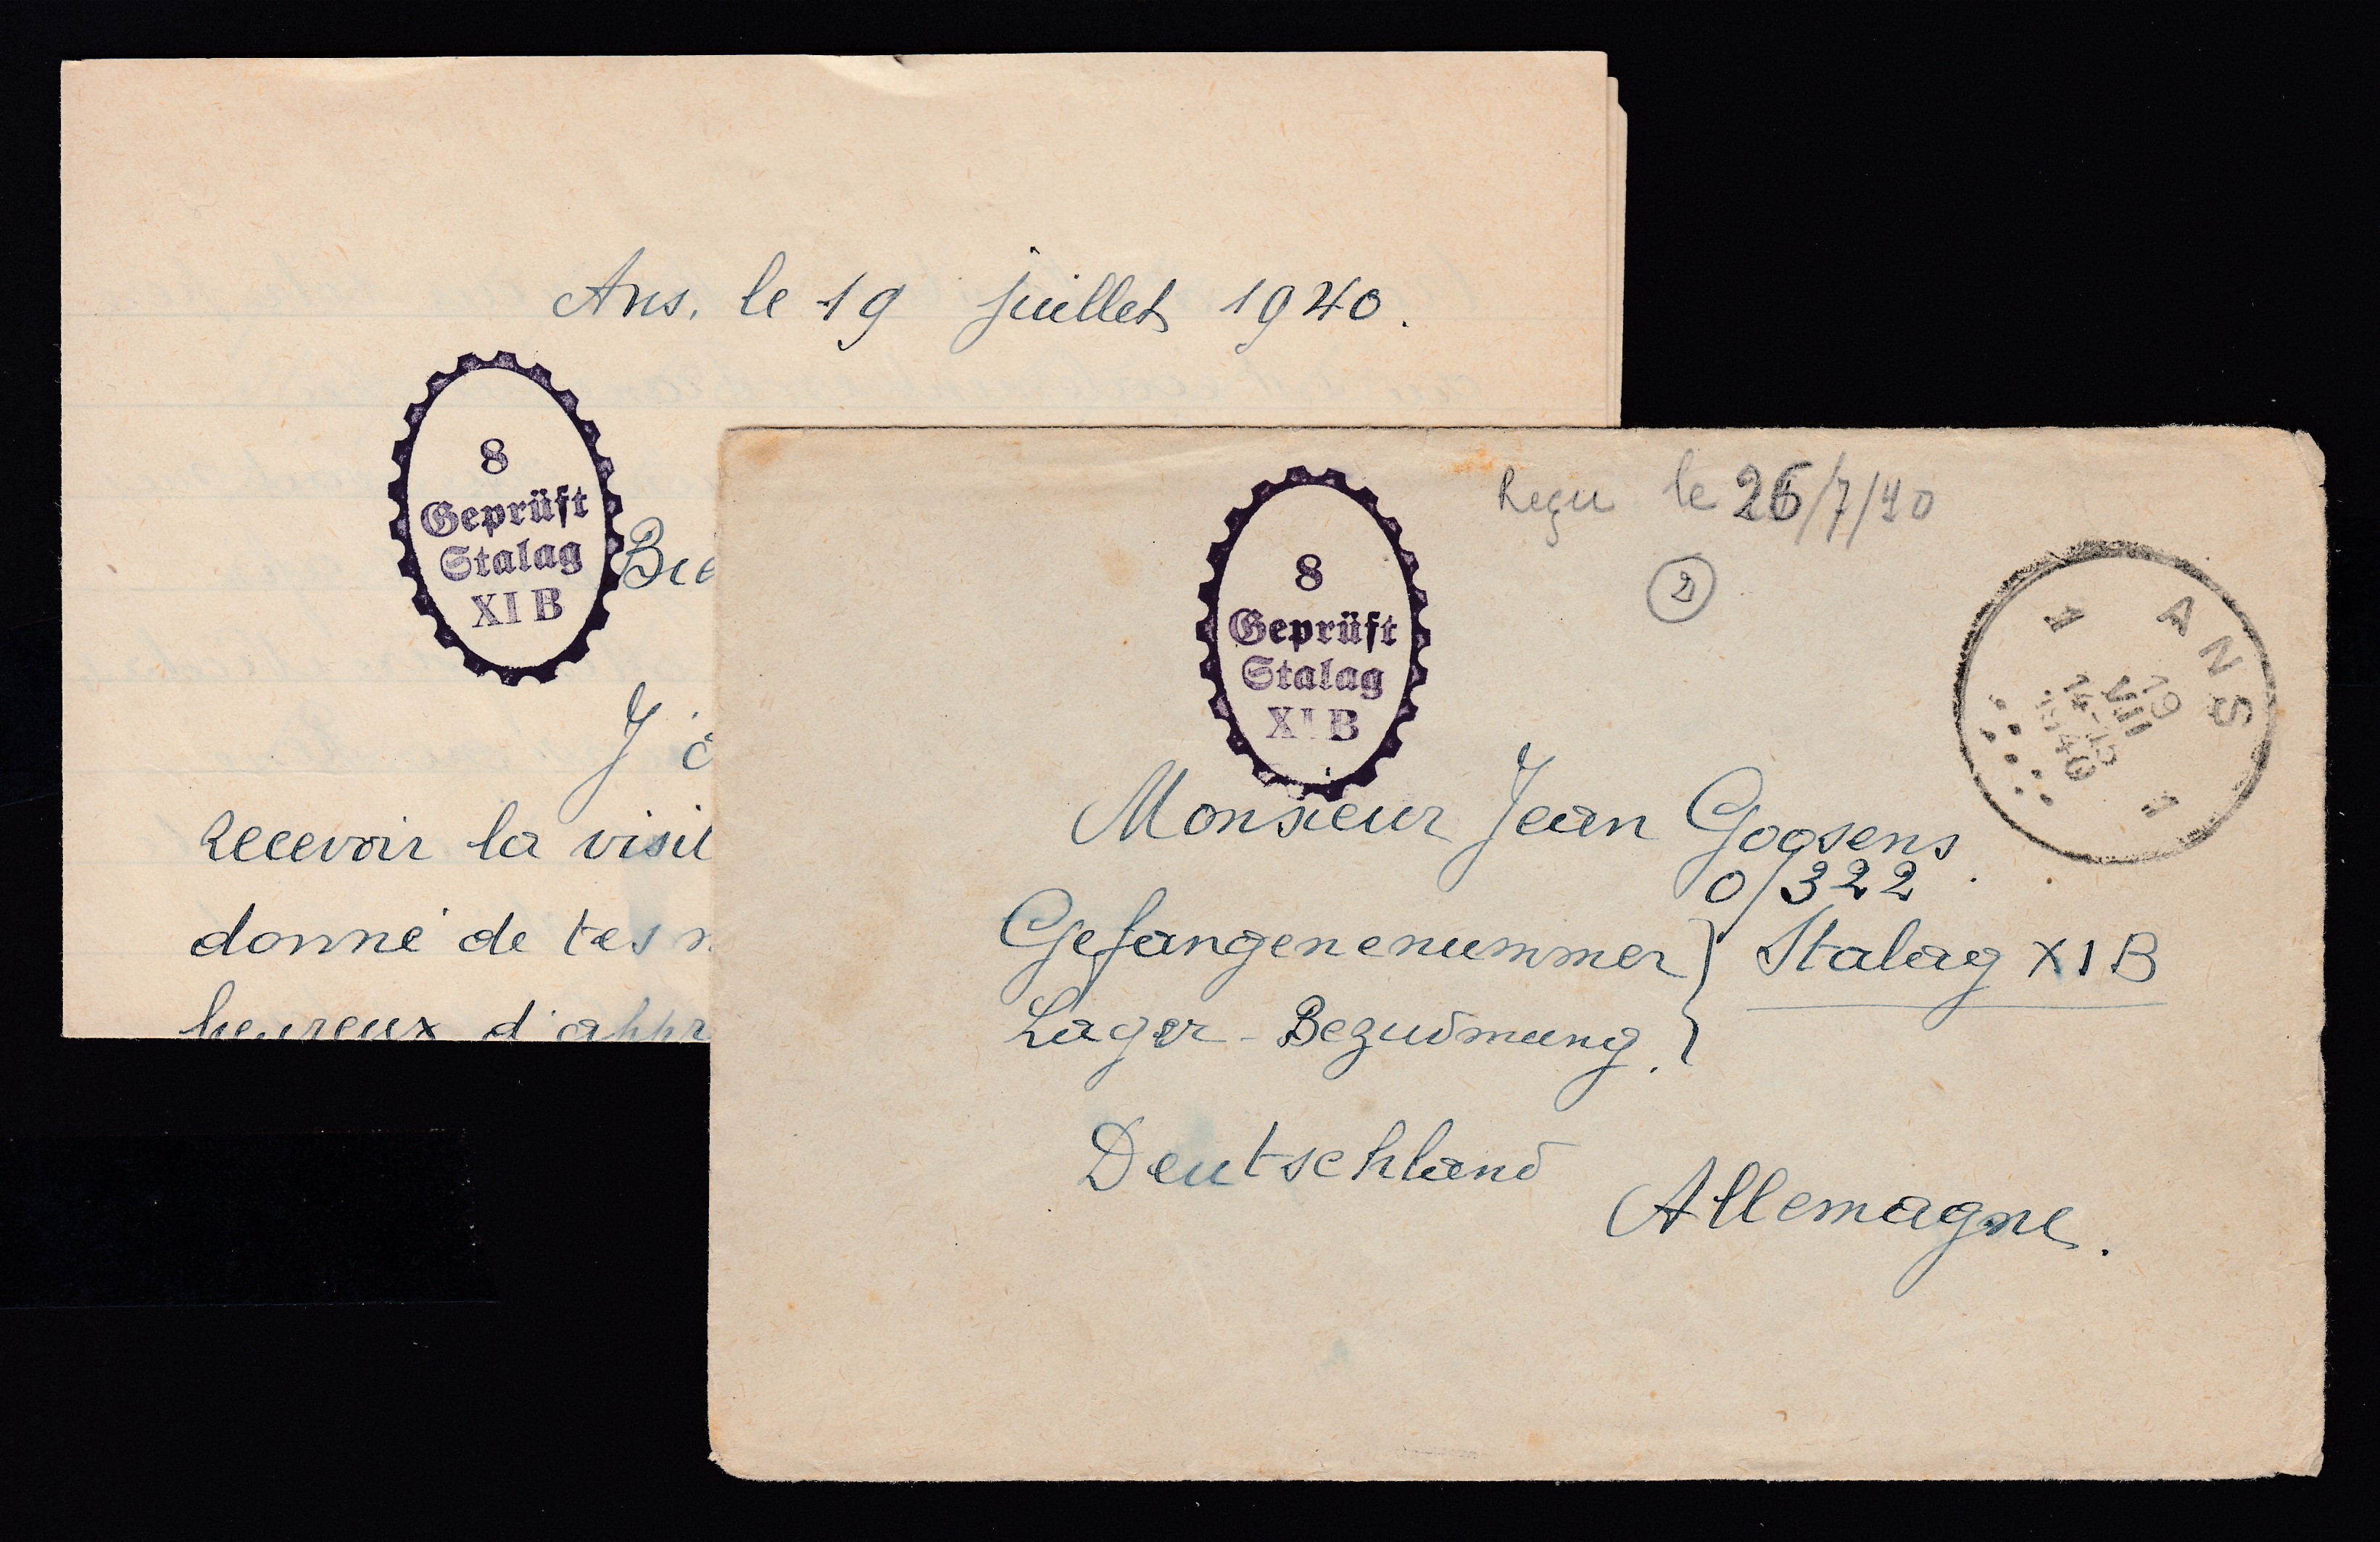 Ans, le 19 juillet 1940.
8
Geprüft
Stalag
XI B
Bie
J'
recevoir la visit
donné de tes
heureux d'appr
Reçu le 26/7/40
2
8
Geprüft
Stalag
XI B
1 ANS 1
19
VII
14-15
1940
Monsieur Jean Goosens.
0/322
Gefangenenummer } Stalag XIB
Lager-Bezuismung. }
Deutschland
Allemagne.